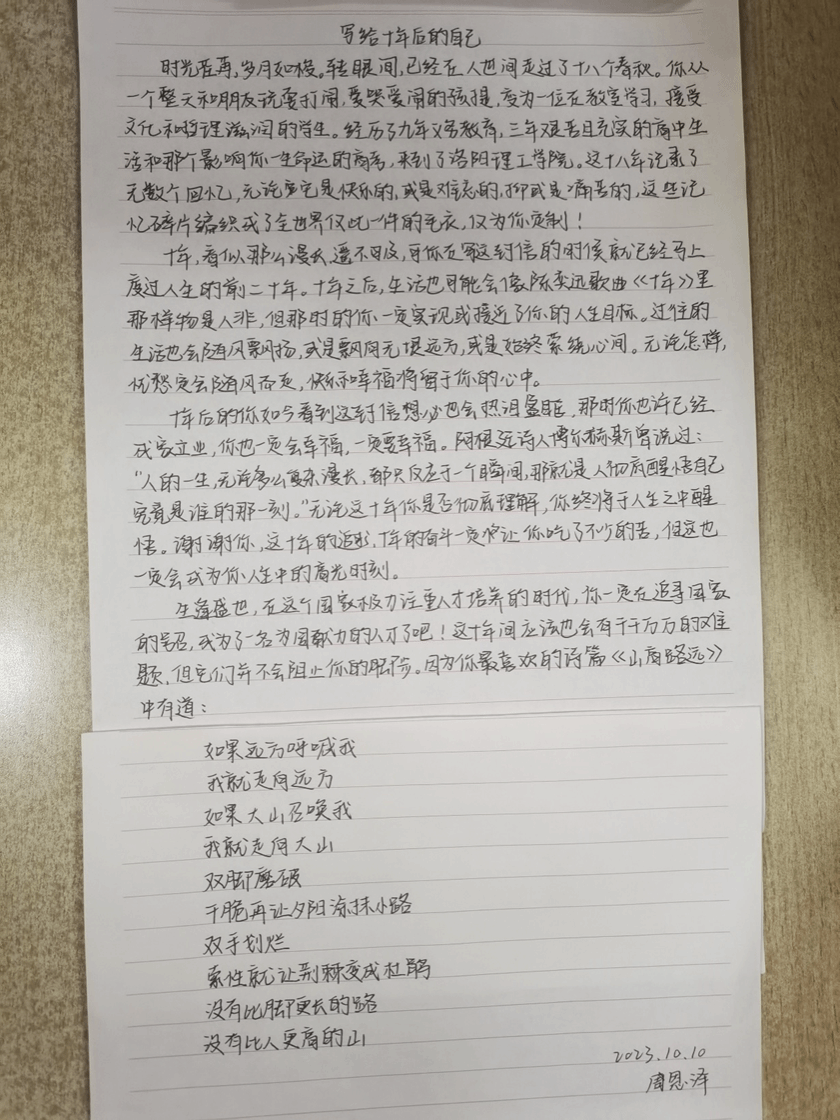 写给十年后的自己
时光荏苒,岁月如梭。转眼间,已经在人世间走过了十八个春秋。你从
一个整天和朋友玩耍打闹,爱哭爱闹的孩提,变为一位在教室学习,接受
文化和哲理滋润的学生。经历了九年义务教育,三年艰苦且充实的高中生
活和那个影响你一生命运的高考,来到了洛阳理工学院。这十八年记录了
无数个回忆,无论它是快乐的,或是难忘的,抑或是痛苦的,这些记
忆碎片编织成了全世界仅此一件的毛衣,仅为你定制!
十年,看似那么漫长,遥不可及,可你在写这封信的时候就已经马上
度过人生的前二十年。十年之后,生活也可能会像陈奕迅歌曲《十年》里
那样物是人非,但那时的你一定实现或接近了你的人生目标。过往的
生活也会随风飘扬,或是飘向无垠远方,或是始终萦绕心间。无论怎样,
忧愁定会随风而走,快乐和幸福将留于你的心中。
十年后的你如今看到这封信想必也会热泪盈眶,那时你也许已经
成家立业,你也一定会幸福,一定要幸福。阿根廷诗人博尔赫斯曾说过:
“人的一生,无论多么复杂漫长,都只反应于一个瞬间,那就是人彻底醒悟自己
究竟是谁的那一刻。”无论这十年你是否彻底理解,你终将于人生之中醒
悟。谢谢你,这十年的追求,十年的奋斗一定让你吃了不少的苦,但这也
一定会成为你人生中的高光时刻。
生逢盛世,在这个国家极力注重人才培养的时代,你一定在追寻国家
的号召,成为了一名为国献力的人才了吧!这十年间应该也会有千千万万的难
题,但它们并不会阻止你的脚步。因为你最喜欢的诗篇《山高路远》
中有道:
如果远方呼喊我
我就走向远方
如果大山召唤我
我就走向大山
双脚磨破
干脆再让夕阳涂抹小路
双手划烂
索性就让荆棘变成杜鹃
没有比脚更长的路
没有比人更高的山
2023.10.10
周恩泽